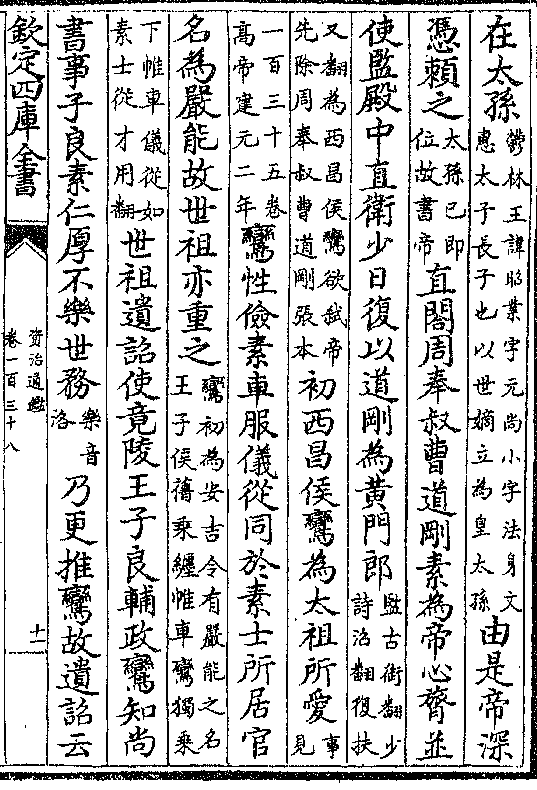 在太孫鬱林王諱昭業字元尚小字法身文惠太子長子也以世嫡立為皇太孫由是帝深
憑賴之太孫已即位故書帝直閤周奉叔曹道剛素為帝心膂並
使監殿中直衛少日復以道剛為黄門郎監古銜翻少詩沼翻復扶
又翻為西昌侯鸞欲弑帝先除周奉叔曹道剛張本初西昌侯鸞為太祖所愛事見
一百三十五卷高帝建元二年鸞性儉素車服儀從同於素士所居官
名為嚴能故世祖亦重之鸞初為安吉令有嚴能之名王子侯舊乗纏帷車鸞獨乗
下帷車儀從如素士從才用翻世祖遺詔使竟陵王子良輔政鸞知尚
書事子良素仁厚不樂世務樂音洛乃更推鸞故遺詔云
欽定四庫全書
資治通鑑
卷一百三十八
十一